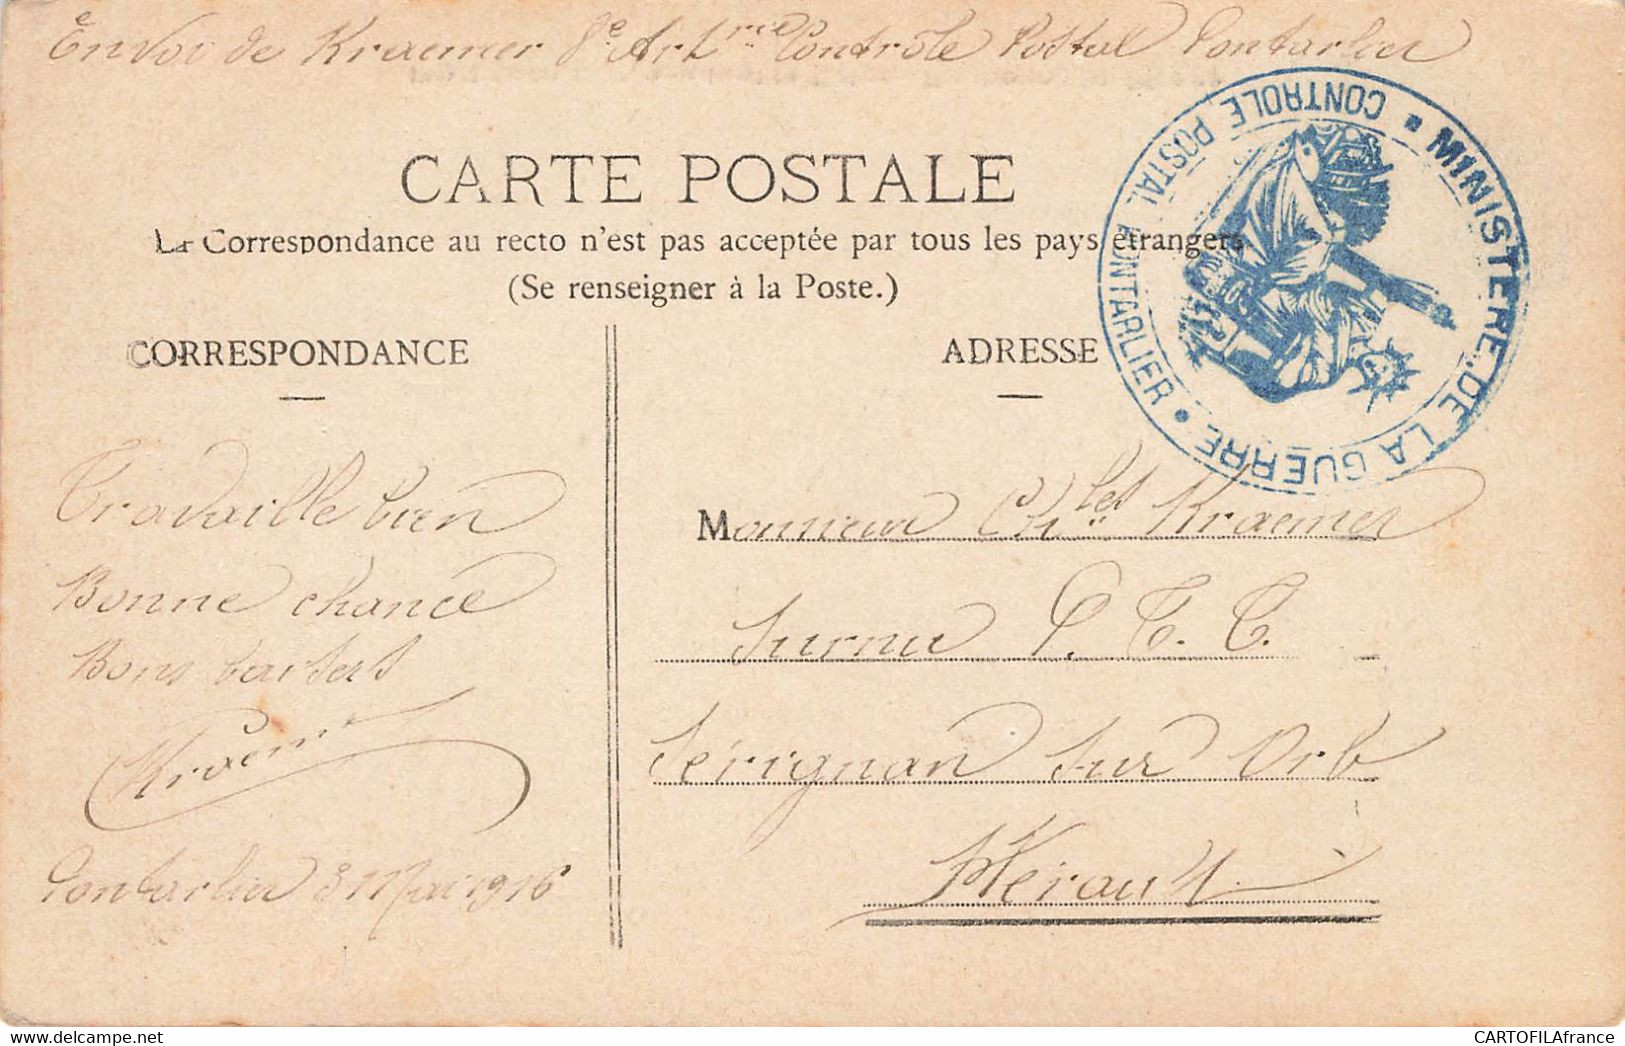 Envoi de Kraemer 8e Artrie Contrôle Postal Pontarlier
MINISTERE DE LA GUERRE
CONTROLE POSTAL PONTARLIER
CARTE POSTALE
La Correspondance au recto n'est pas acceptée par tous les pays étrangers
(Se renseigner à la Poste.)
CORRESPONDANCE
ADRESSE
Travaille bien
Bonne chance
Bons baisers
Kraemer
Pontarlier 8 Mai 1916
Monsieur Chles Kraemer
Surnu P. T. T.
Sérignan sur Orb
Hérault
www.delcampe.net
CARTOFILAfrance